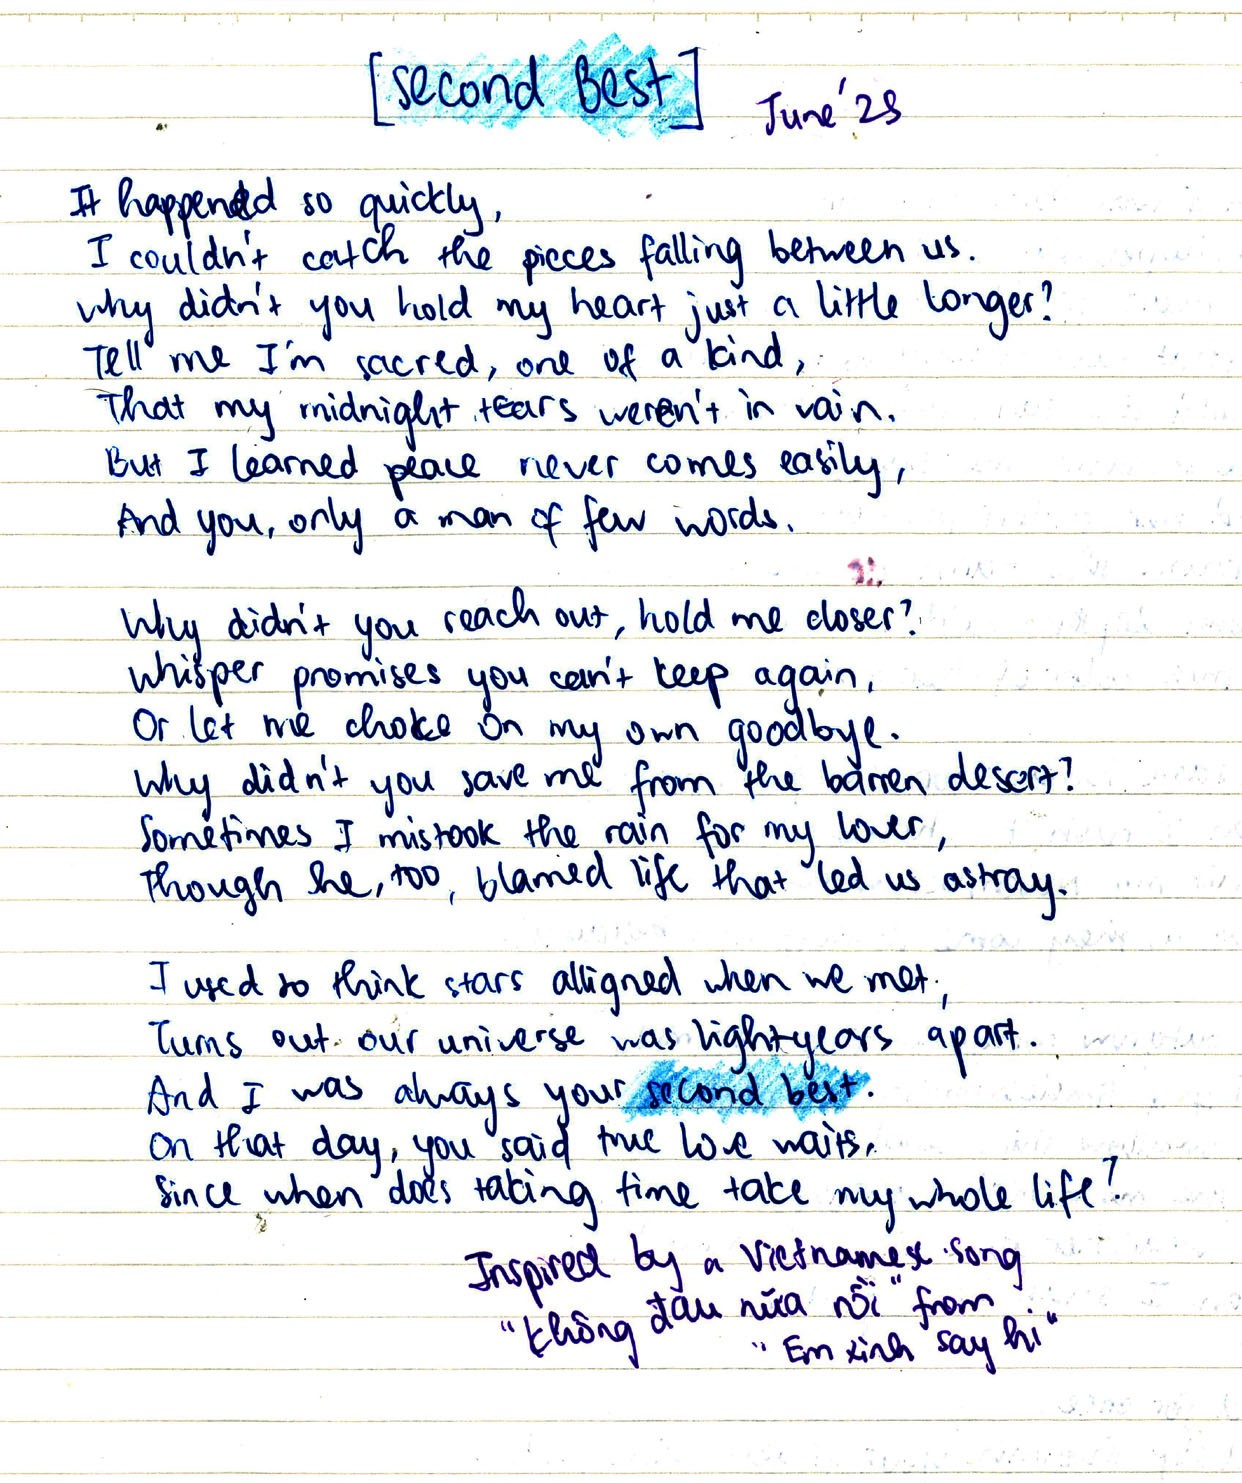 [Second Best]
June '25
It happened so quickly,
I couldn't catch the pieces falling between us.
Why didn't you hold my heart just a little longer?
Tell me I'm sacred, one of a kind,
That my midnight tears weren't in vain.
But I learned peace never comes easily,
And you, only a man of few words.
Why didn't you reach out, hold me closer?
Whisper promises you can't keep again,
Or let me choke on my own goodbye.
Why didn't you save me from the barren desert?
Sometimes I mistook the rain for my lover,
Though she, too, blamed life that led us astray.
I used to think stars alligned when we met,
Turns out our universe was lightyears apart.
And I was always your second best.
On that day, you said true love waits,
Since when does taking time take my whole life?
Inspired by a Vietnamese song
"Không đau nữa rồi" from
"Em xinh say hi"